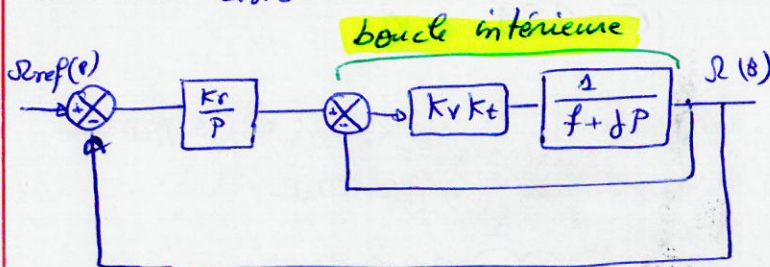 boucle intérieure
Ωref(P)
Ω(P)
Kr
P
Kv Kt
1
f + JP